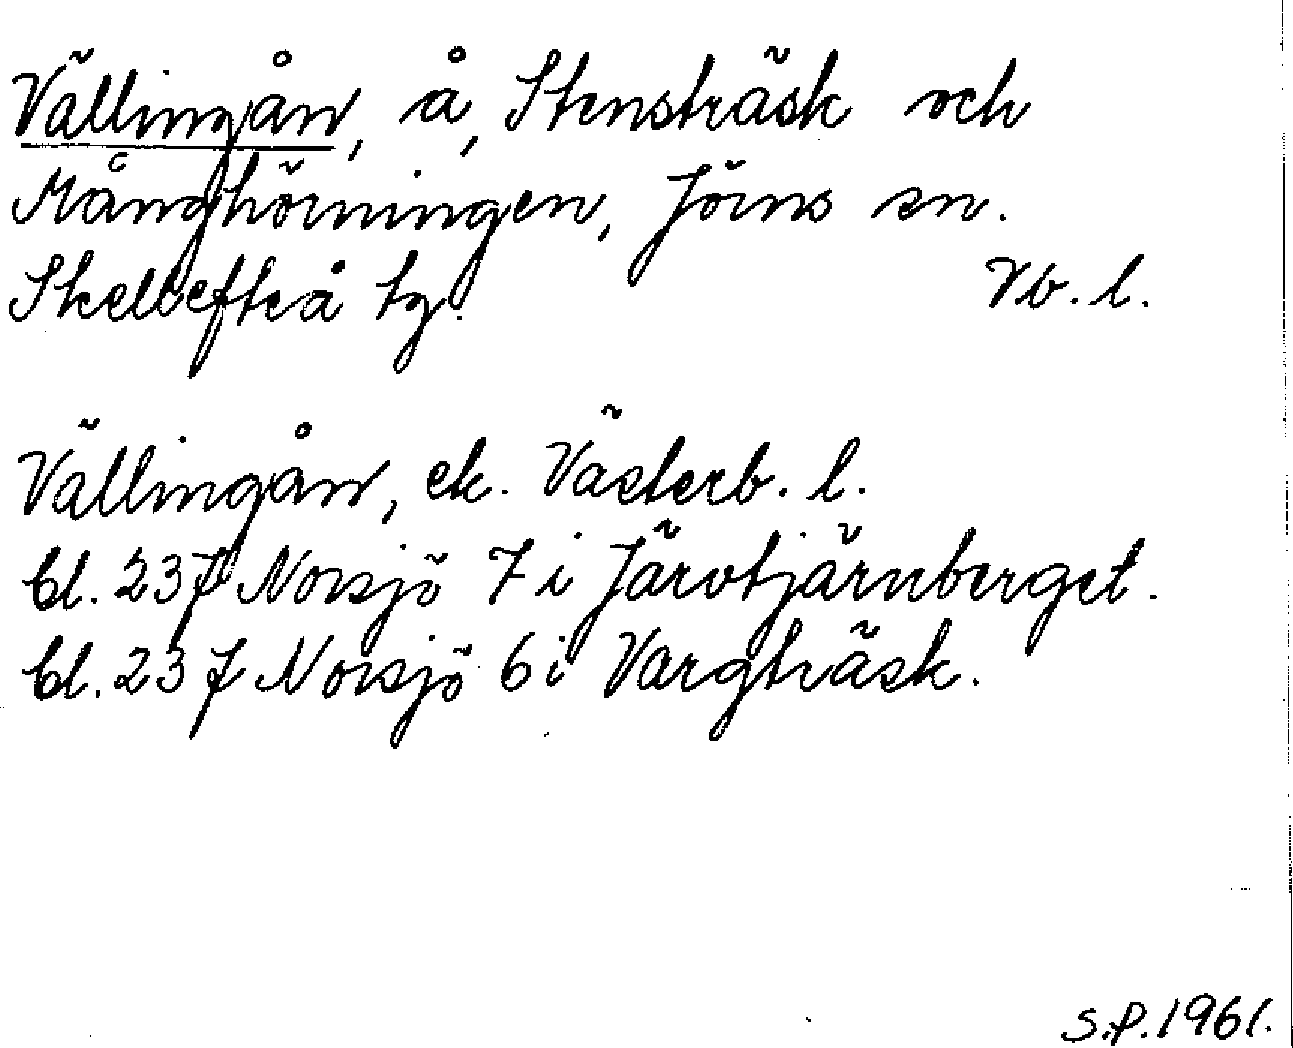 Vällingån, å, Stensträsk och
Månghörningen, Jörns sn.
Skellefteå tg. Vb. l.
Vällingån, ek. Västerb. l.
Bl. 237 Norsjö 7 i Järvtjärnberget.
Bl. 237 Norsjö 6 i Vargträsk.
S.P. 1961.